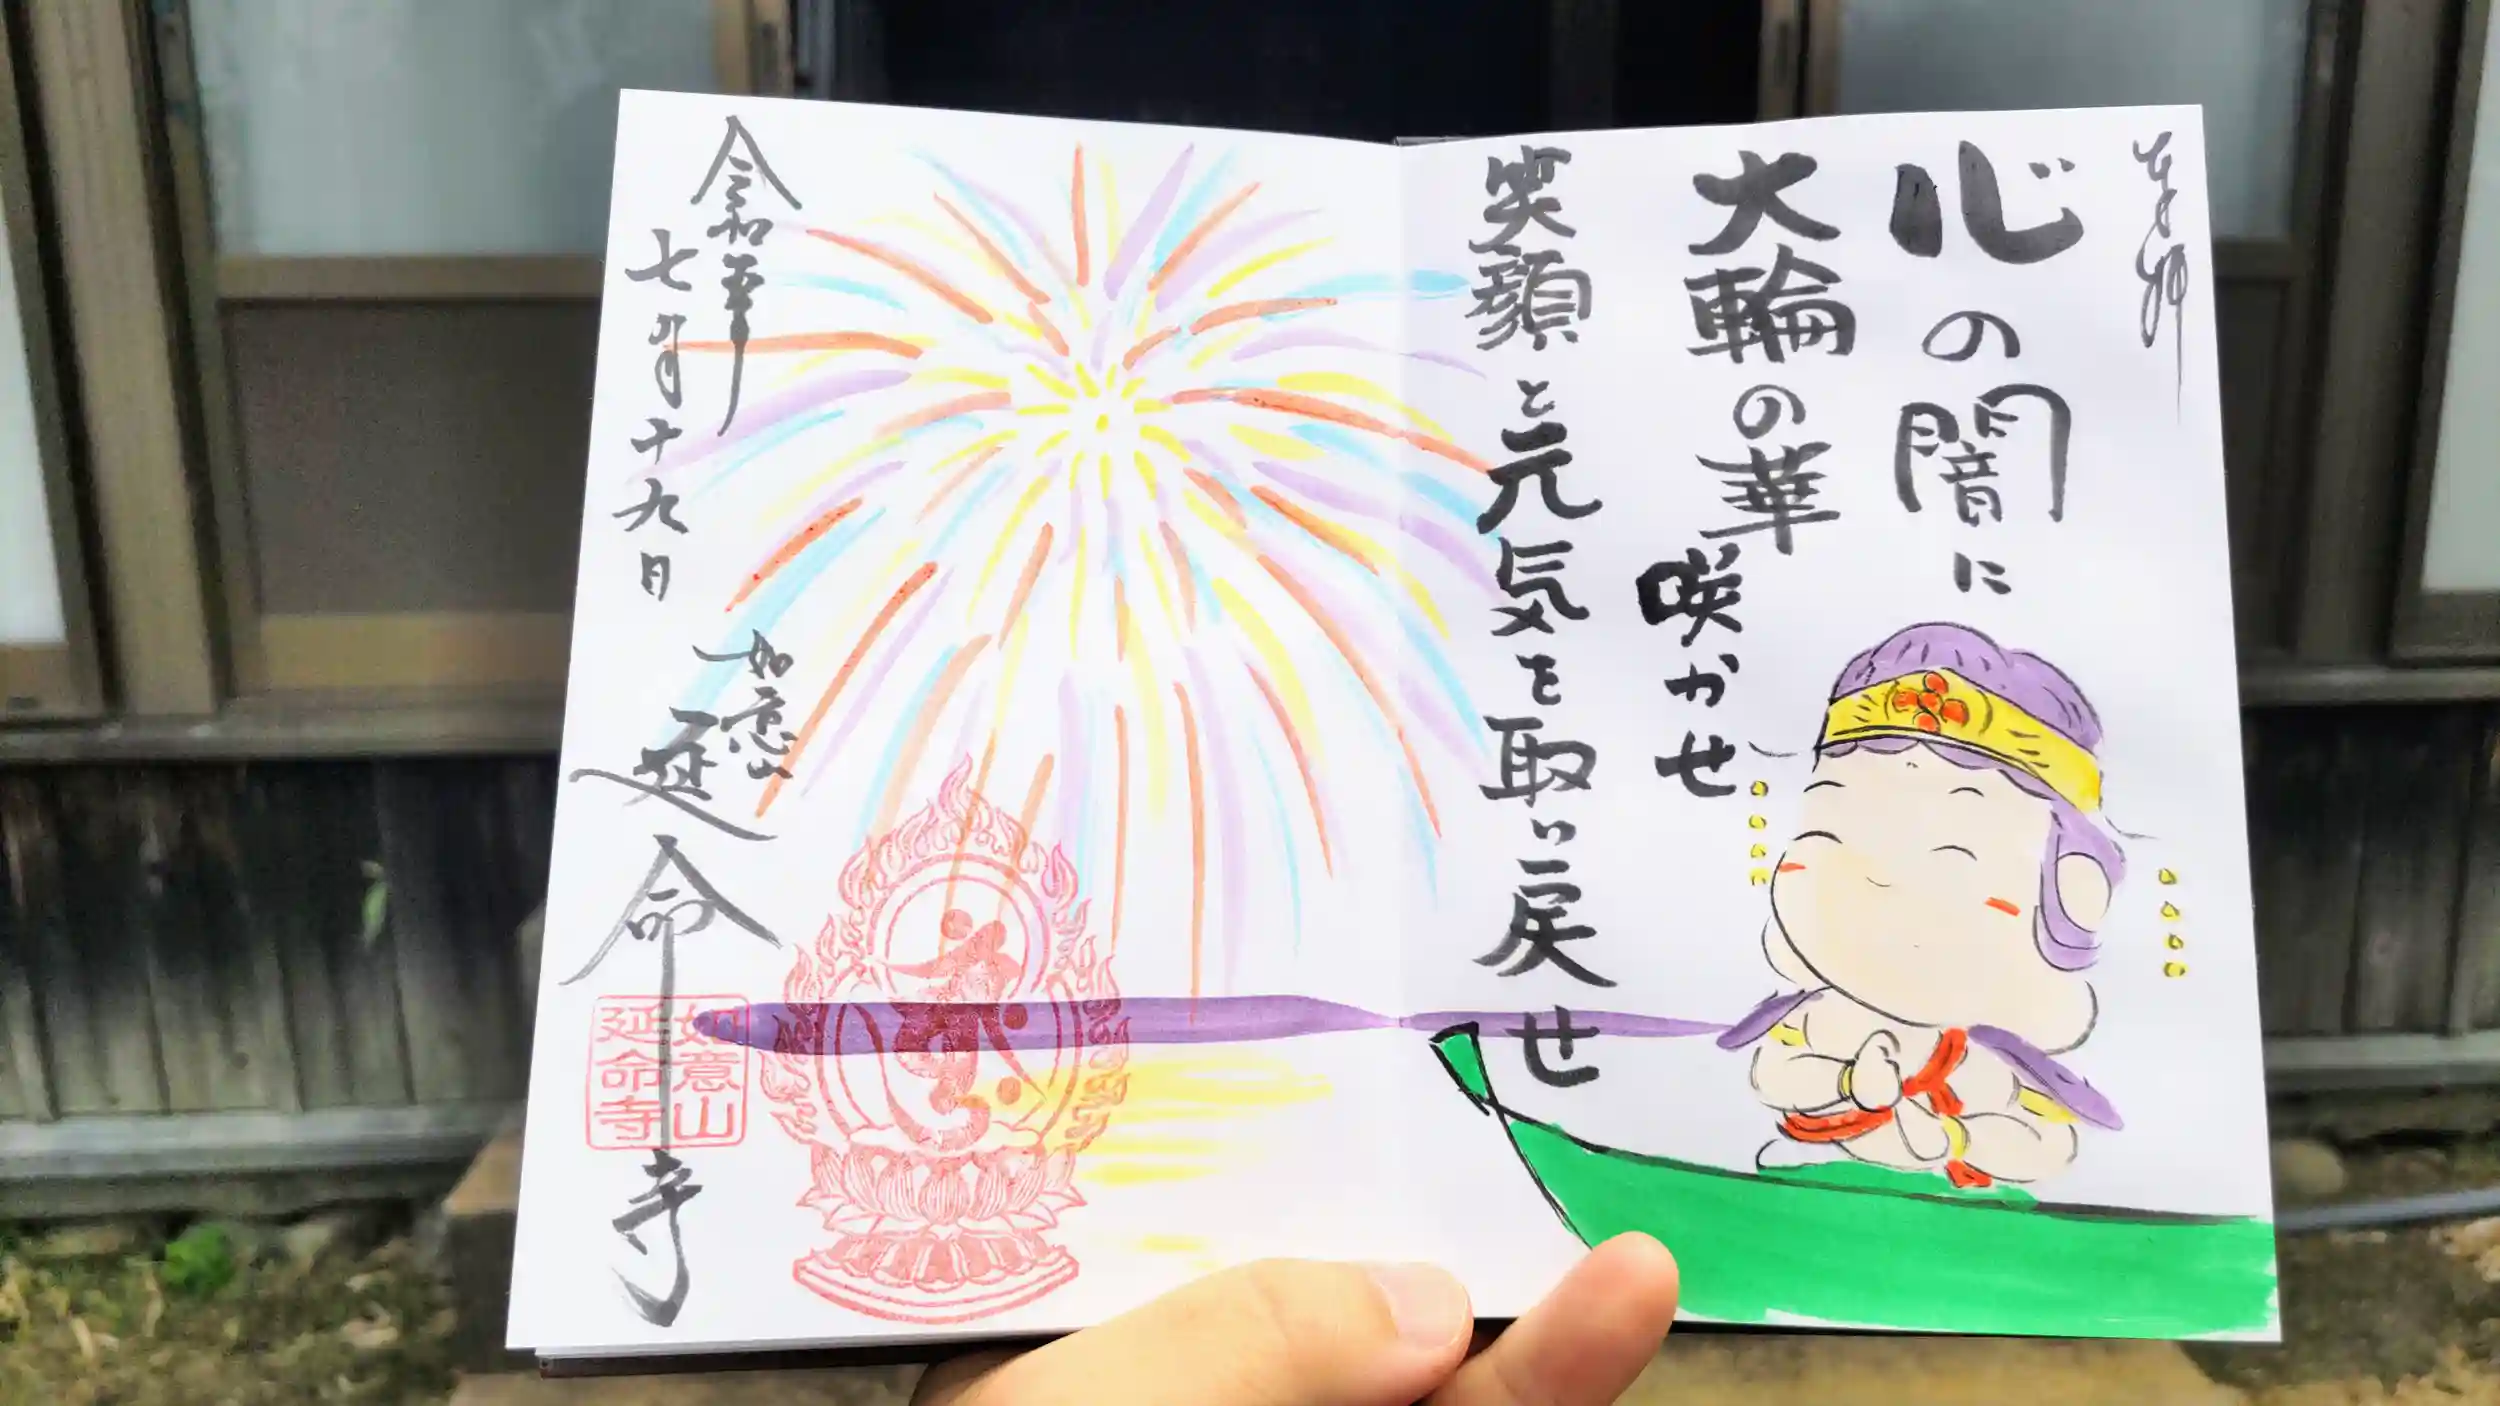 奉拝
心の闇に
大輪の華
咲かせ
笑顔と元気を取り戻せ
令和
七月十九日
如意山
延命寺
如意山
延命寺